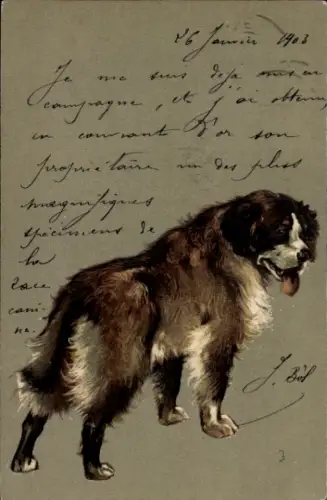 26 Janvier 1903
Je me suis déjà mis en
campagne, et j'ai obtenu,
en couvrant d'or son
propriétaire un des plus
magnifiques
spécimens de
la
race
cani-
ne.
J. Bôl